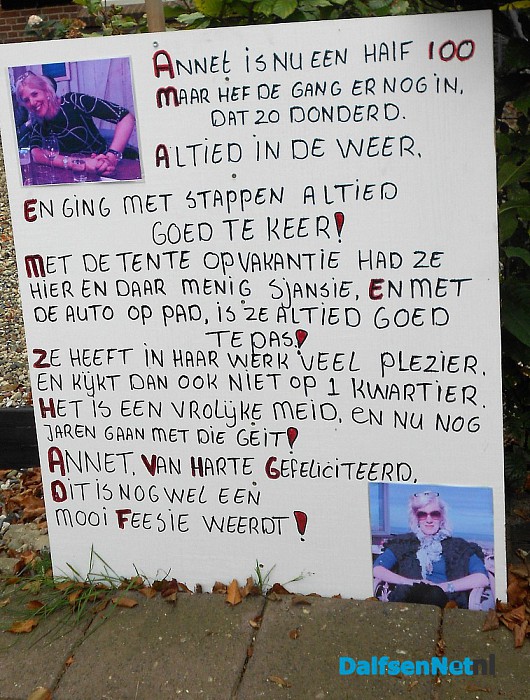 ANNEt IS NU EEN HALF 100
MAAR HEF DE GANG ER NOG IN,
DAT ZO DONDERD.
ALTIED IN DE WEER,
EN GING MET STAPPEN ALTIED
GOED TE KEER!
MET DE TENTE OP VAKANTIE HAD ZE
HIER EN DAAR MENIG SJANSIE, EN MET
DE AUTO OP PAD, IS ZE ALTIED GOED
TE PAS!
ZE HEEFT IN HAAR WERK VEEL PLEZIER,
EN KIJKT DAN OOK NIET OP 1 KWARTIER.
HET IS EEN VROLIJKE MEID, EN NU NOG
JAREN GAAN MET DIE GEIT!
ANNET, VAN HARTE GEFELICITEERD,
DIT IS NOG WEL EEN
MOOI FEESIE WEERDT!
DalfsenNet.nl